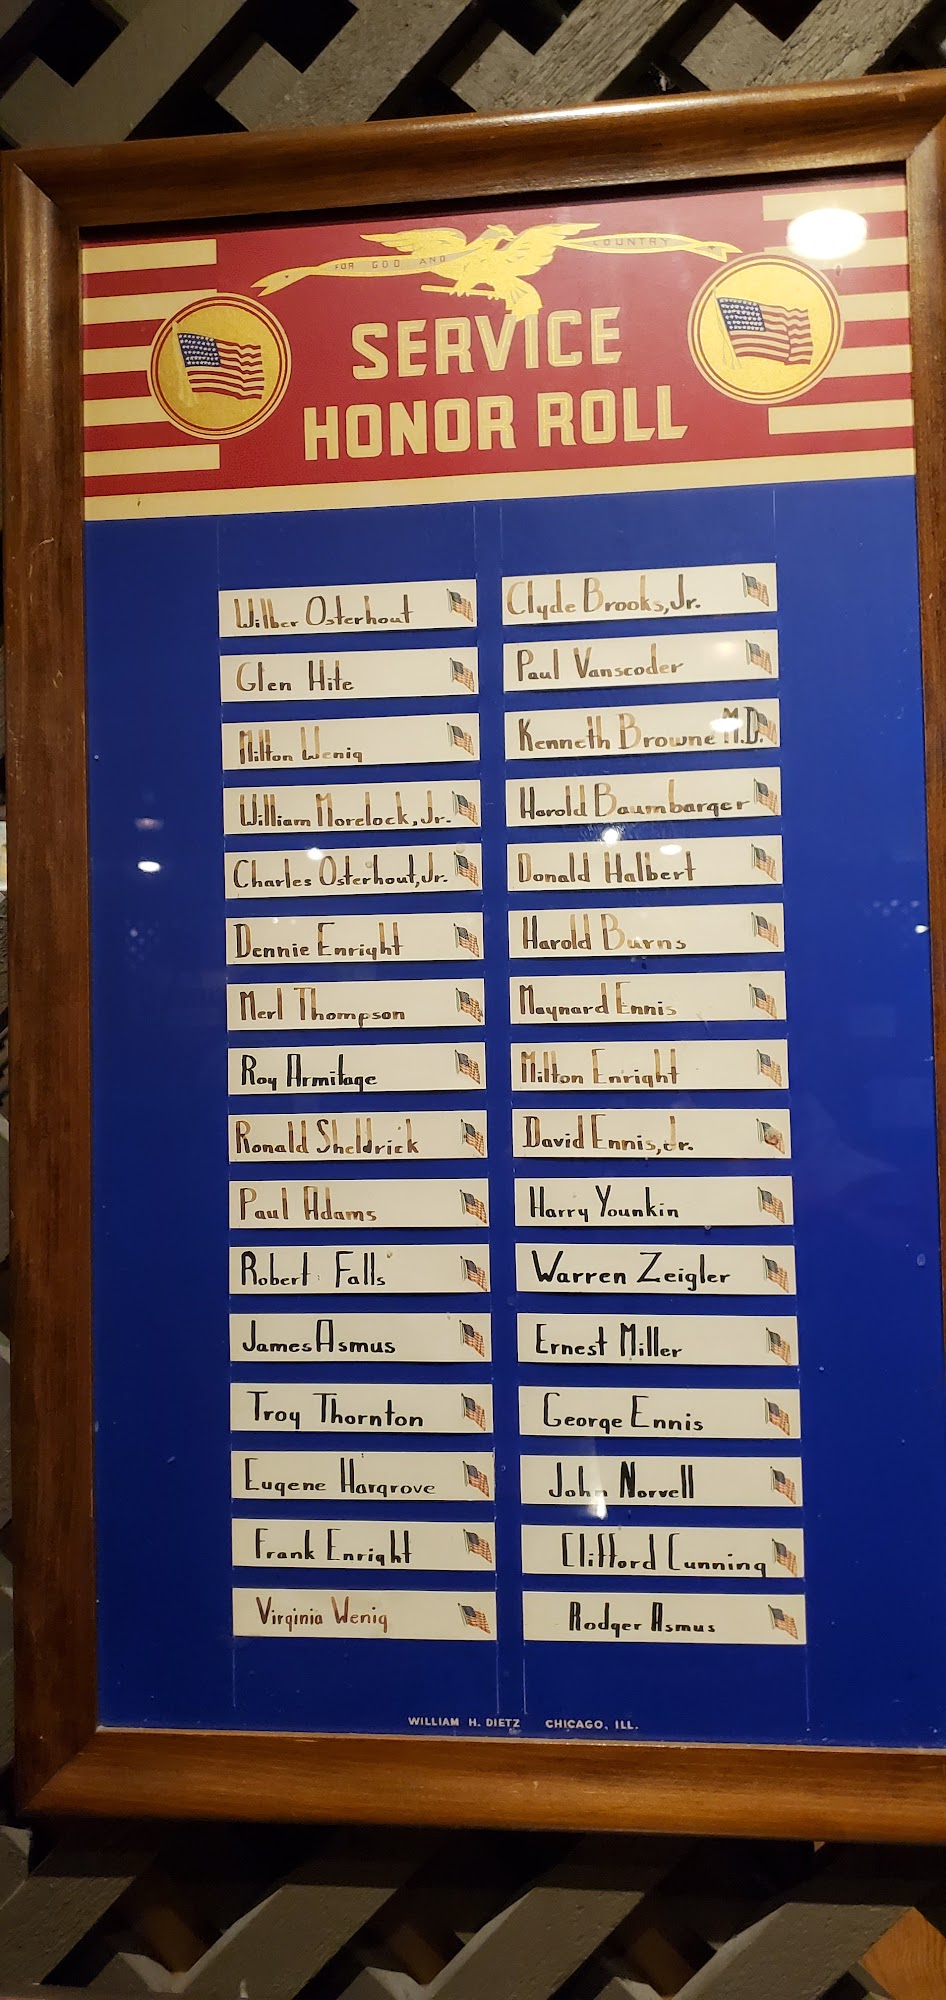 FOR GOD AND COUNTRY
SERVICE
HONOR ROLL
Wilber Osterhout
Glen Hite
Milton Wenig
William Morelock, Jr.
Charles Osterhout, Jr.
Dennie Enright
Merl Thompson
Roy Armitage
Ronald Sheldrick
Paul Adams
Robert Falls
James Asmus
Troy Thornton
Eugene Hargrove
Frank Enright
Virginia Wenig
Clyde Brooks, Jr.
Paul Vanscoder
Kenneth Browne M.D.
Harold Baumbarger
Donald Halbert
Harold Burns
Maynard Ennis
Milton Enright
David Ennis, Jr.
Harry Younkin
Warren Zeigler
Ernest Miller
George Ennis
John Norvell
Clifford Cunning
Rodger Asmus
WILLIAM H. DIETZ CHICAGO, ILL.